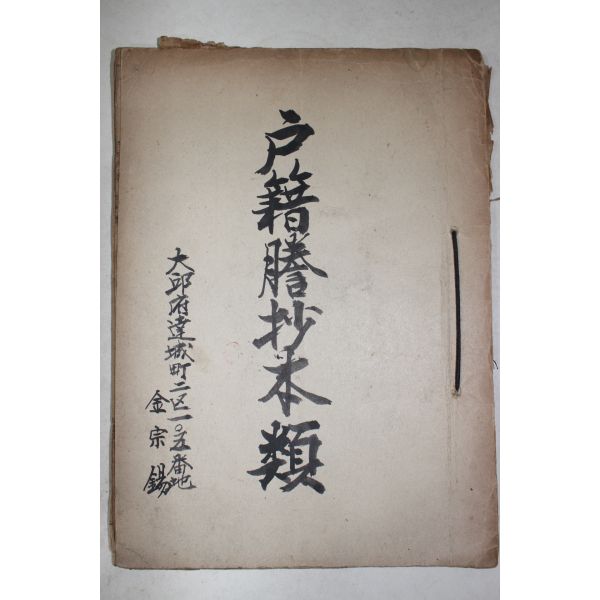 戸籍謄抄本類
大邱府達城町二区一〇五番地
金宗錫